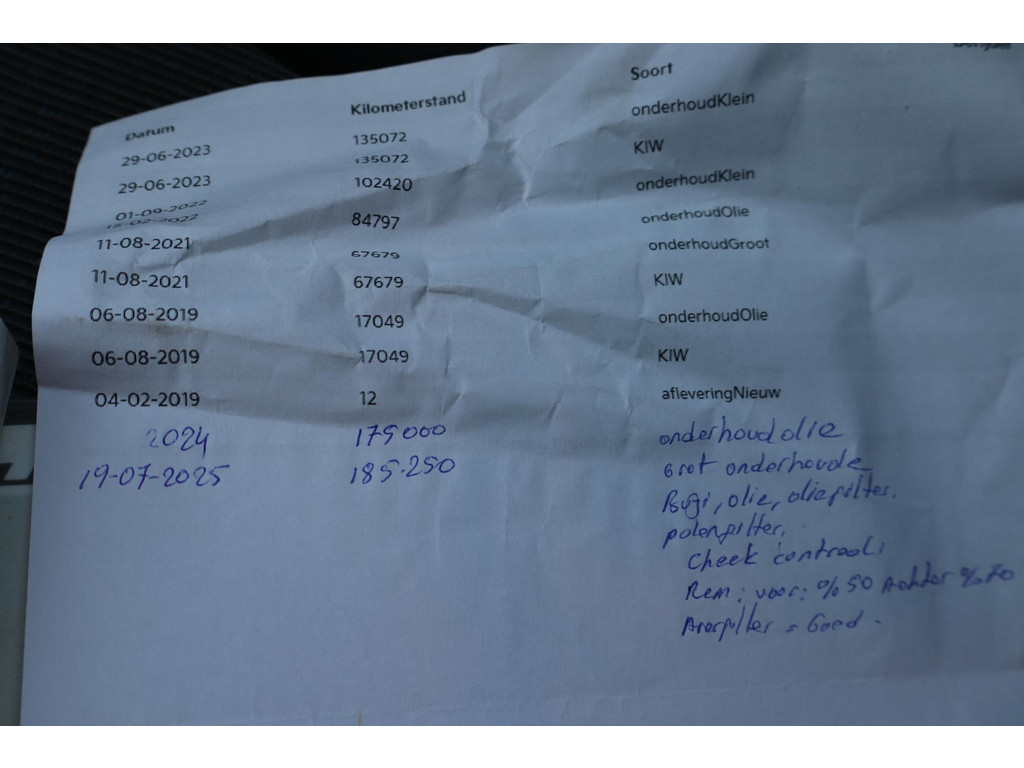 Datum Kilometerstand Soort
29-06-2023 135072 onderhoudKlein
29-06-2023 135072 KIW
01-09-2022 102420 onderhoudKlein
15-02-2022 84797 onderhoudOlie
11-08-2021 67679 onderhoudGroot
11-08-2021 67679 KIW
06-08-2019 17049 onderhoudOlie
06-08-2019 17049 KIW
04-02-2019 12 afleveringNieuw
2024 175000 onderhoud olie
19-07-2025 185.250 Grot onderhoude
Bugi, olie, oliefilter.
polenfilter.
Cheek controol
Rem: voor: %50 Achter %70
= Goed.